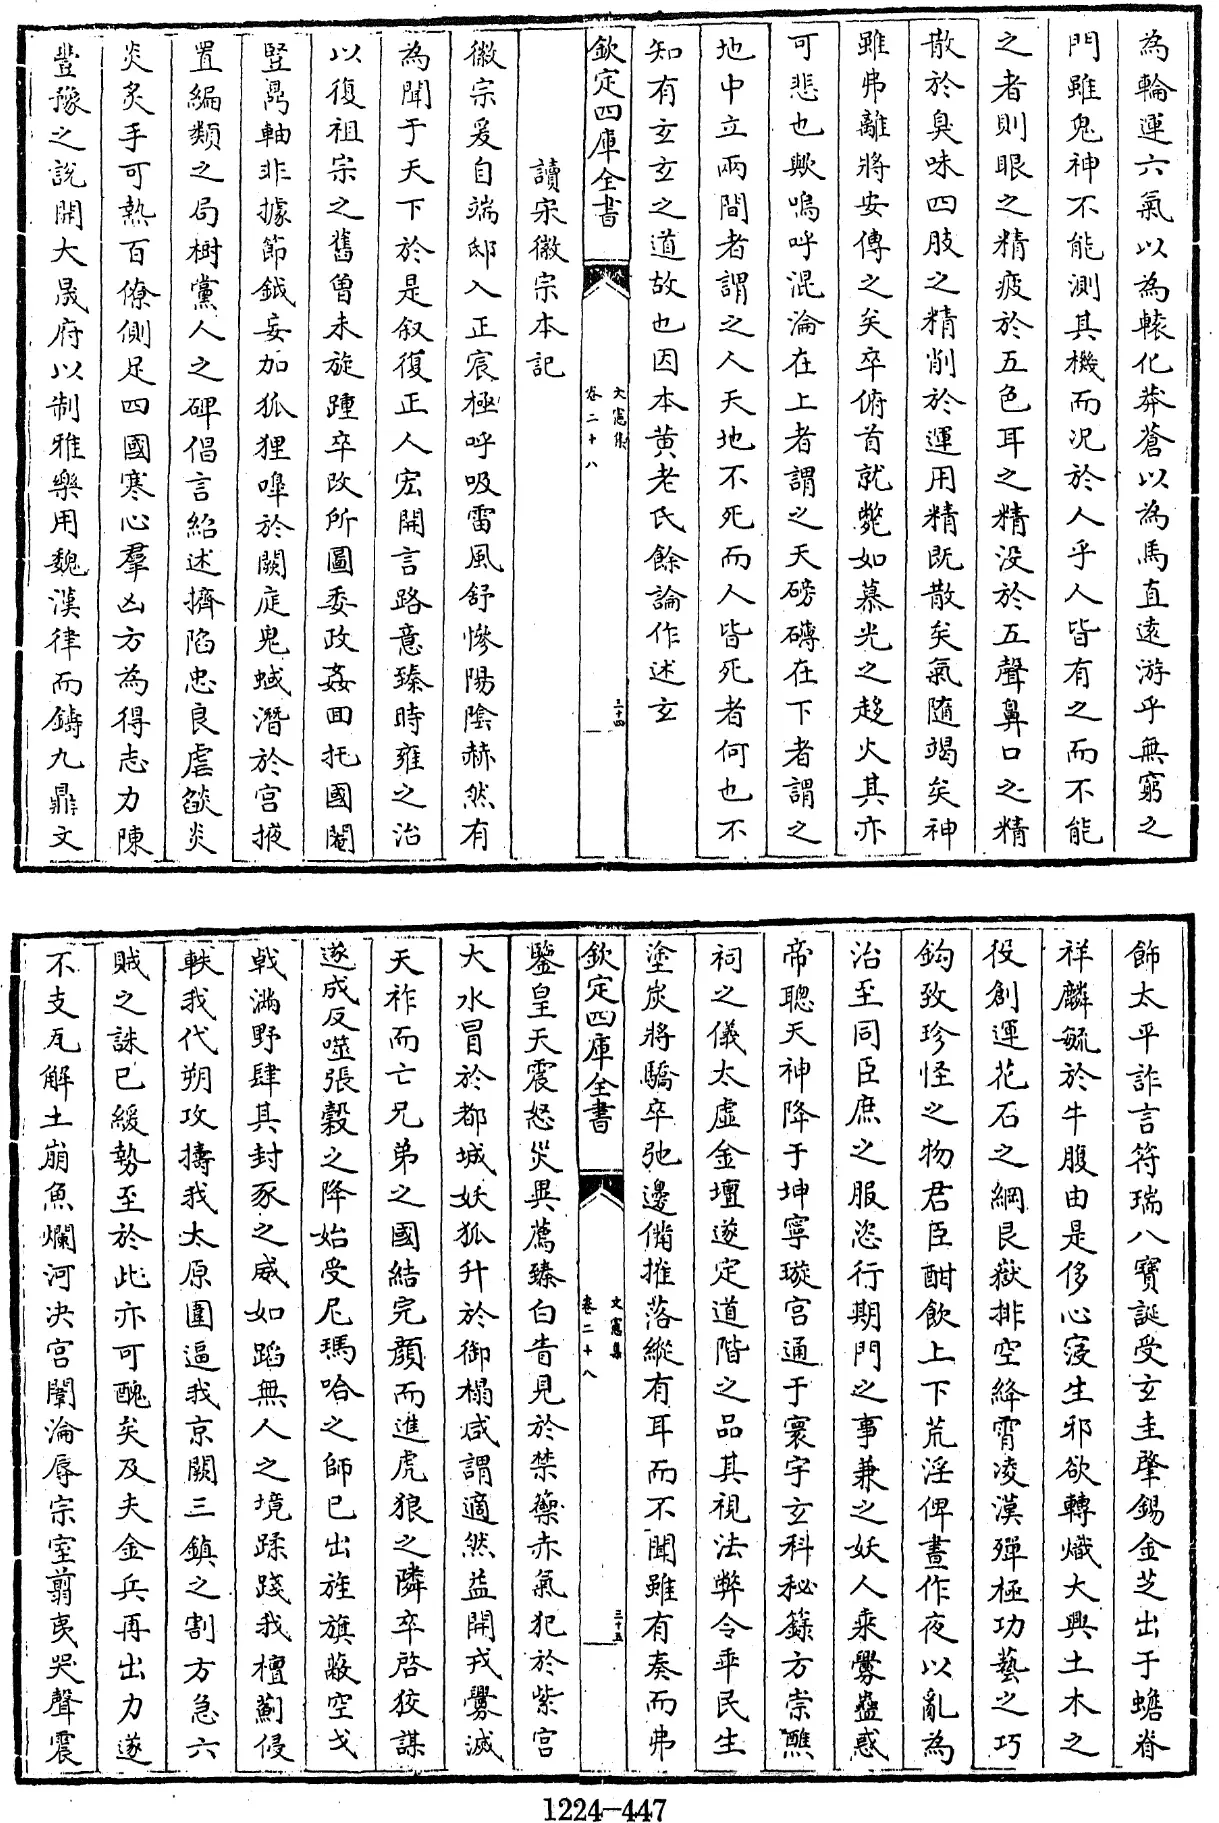 為輪運六氣以為轅化莽蒼以為馬直遠游乎無窮之
門雖鬼神不能測其機而況於人乎人皆有之而不能
之者則眼之精疲於五色耳之精没於五聲鼻口之精
散於臭味四肢之精削於運用精既散矣氣隨竭矣神
雖弗離將安傳之矣卒俯首就斃如慕光之趍火其亦
可悲也歟嗚呼混淪在上者謂之天磅礴在下者謂之
地中立兩間者謂之人天地不死而人皆死者何也不
知有玄玄之道故也因本黄老氏餘論作述玄
欽定四庫全書
文憲集
卷二十八
三十四
讀宋徽宗本記
徽宗爰自端邸入正宸極呼吸雷風舒慘陽陰赫然有
為聞于天下於是叙復正人宏開言路意臻時雍之治
以復祖宗之舊曾未旋踵卒改所圖委政姦回托國閹
竪冎軸非據節鉞妄加狐狸嘷於闕庭鬼蜮潛於宫掖
置編類之局樹黨人之碑倡言紹述擠陷忠良虐燄炎
炎炙手可熱百僚側足四國寒心羣凶方為得志力陳
豐豫之説開大晟府以制雅樂用魏漢律而鑄九鼎文
飾太平詐言符瑞八寶誕受玄圭肇錫金芝出于蟾脊
祥麟毓於牛腹由是侈心寖生邪欲轉熾大興土木之
役創運花石之綱艮嶽排空絳霄凌漢殫極功藝之巧
鈎致珍怪之物君臣酣飲上下荒淫俾晝作夜以亂為
治至同臣庶之服恣行期門之事兼之妖人乘釁蠱惑
帝聰天神降于坤寧璇宫通于寰宇玄科秘籙方崇醮
祠之儀太虚金壇遂定道階之品其視法弊令乖民生
塗炭將驕卒弛邊備摧落縱有耳而不聞雖有奏而弗
欽定四庫全書
文憲集
卷二十八
三十五
鑒皇天震怒災異薦臻白眚見於禁籞赤氣犯於紫宫
大水冒於都城妖狐升於御榻咸謂適然益開戎釁滅
天祚而亡兄弟之國結完顔而進虎狼之隣卒啓狡謀
遂成反噬張瑴之降始受尼瑪哈之師已出旌旗蔽空戈
戟滿野肆其封豕之威如蹈無人之境蹂踐我檀薊侵
軼我代朔攻擣我太原圍逼我京闕三鎮之割方急六
賊之誅已緩勢至於此亦可醜矣及夫金兵再出力遂
不支瓦解土崩魚爛河决宫闈淪辱宗室翦夷哭聲震
1224-447